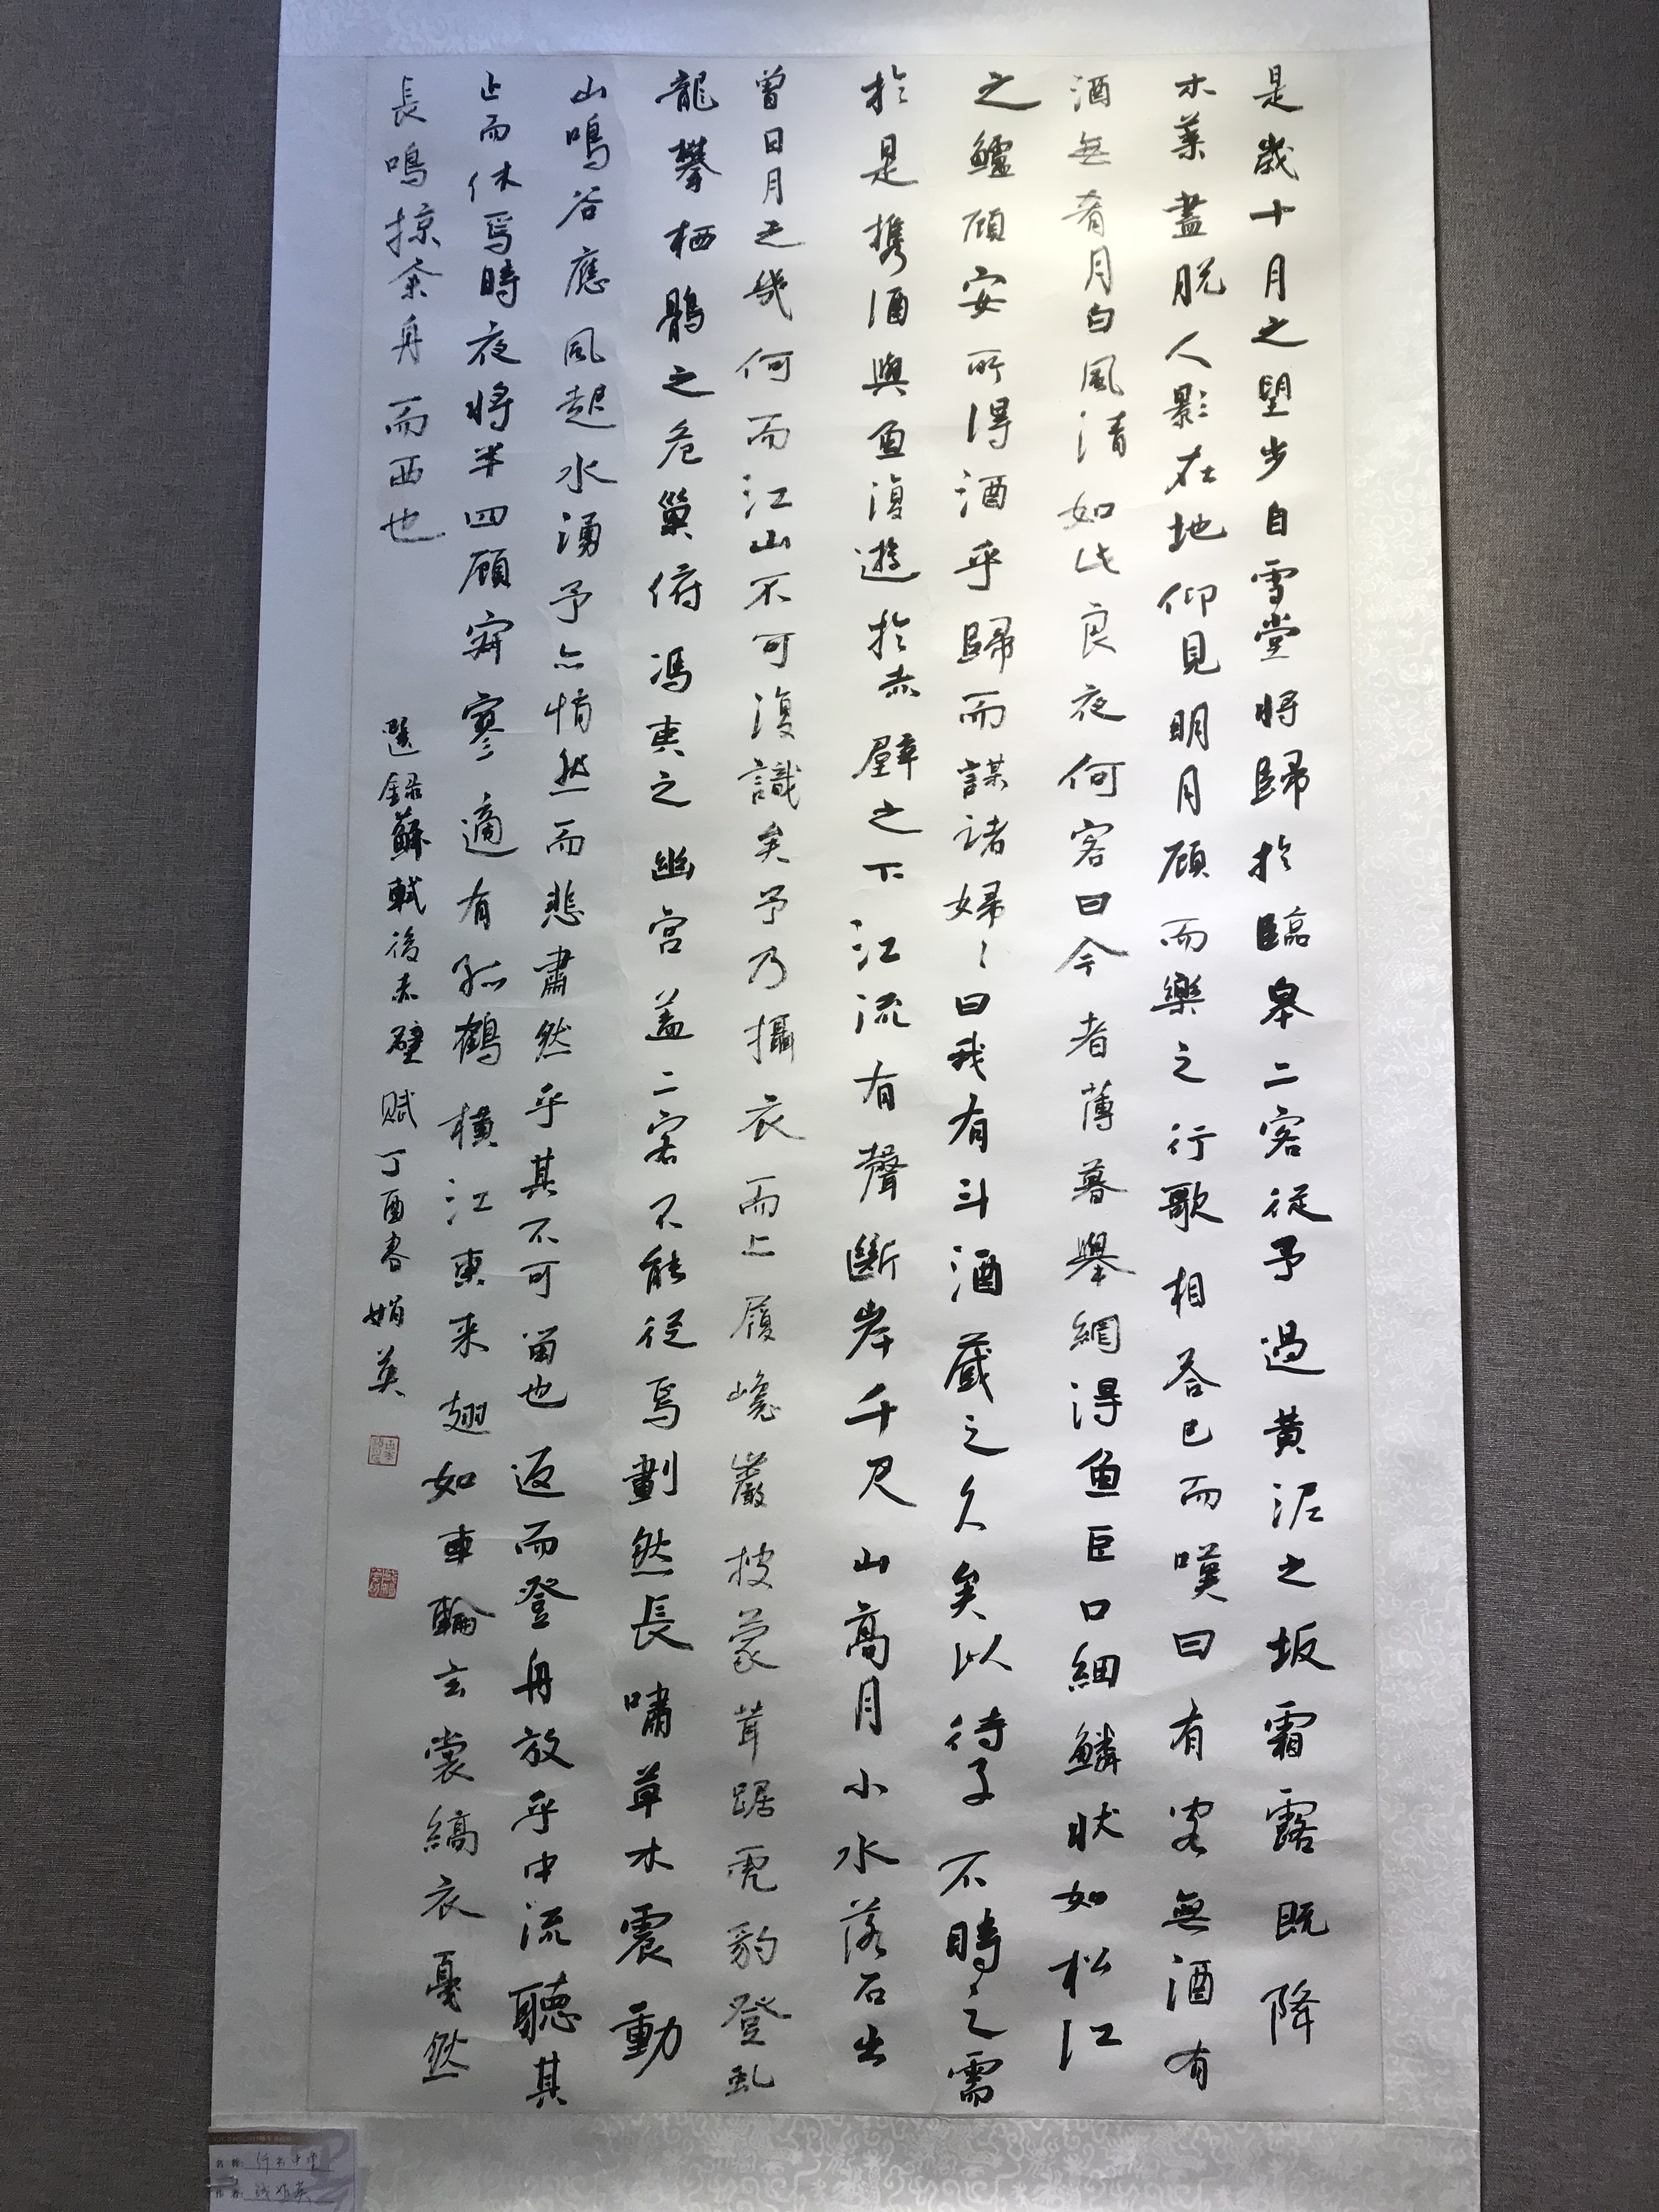 是歲十月之望步自雪堂將歸於臨皋二客從予過黃泥之坂霜露既降
木葉盡脫人影在地仰見明月顧而樂之行歌相答已而嘆曰有客無酒有
酒無肴月白風清如此良夜何客曰今者薄暮舉網得魚巨口細鱗狀如松江
之鱸顧安所得酒乎歸而謀諸婦〻曰我有斗酒藏之久矣以待子不時之需
於是攜酒與魚復遊於赤壁之下江流有聲斷岸千尺山高月小水落石出
曾日月之幾何而江山不可復識矣予乃攝衣而上履巉巖披蒙茸踞虎豹登虬
龍攀栖鶻之危巢俯馮夷之幽宮蓋二客不能從焉劃然長嘯草木震動
山鳴谷應風起水湧予亦悄然而悲肅然乎其不可留也返而登舟放乎中流聽其
止而休焉時夜將半四顧寂寥適有孤鶴橫江東来翅如車輪玄裳縞衣戛然
長鳴掠余舟而西也
選録蘇軾後赤壁賦丁酉春娟英
名稱：行书中堂